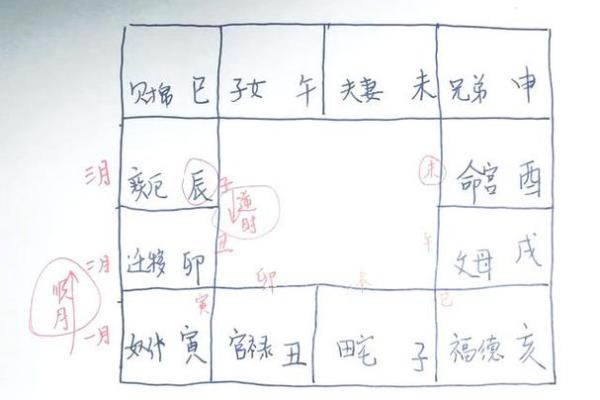 财帛 巳 子女 午 夫妻 未 兄弟 申
三月 疾厄 辰 子 未 命宫 酉
逆时
二月 迁移 卯 丑 午 父母 戌
寅 卯 辰 巳
顺月
一月 奴仆 寅 官禄 丑 田宅 子 福德 亥